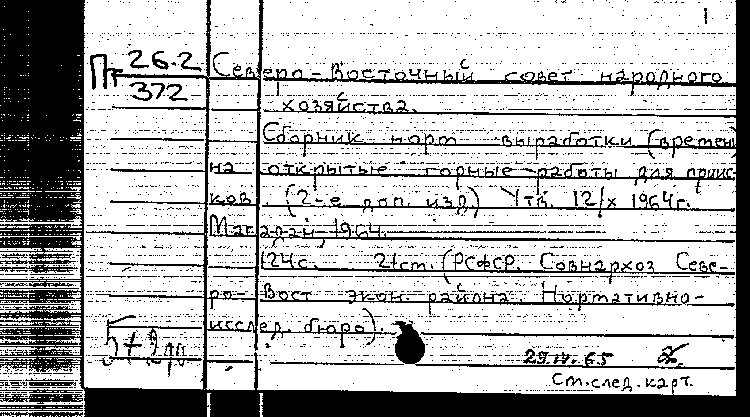 1
Пт 26.2
372
Северо-Восточный совет народного
хозяйства.
Сборник норм выработки (времен
на открытые горные работы для приис-
ков. (2-е доп. изд) Утв. 12/X 1964г.
Магадан, 1964.
124с. 21ст. (РСФСР. Совнархоз Севе-
ро-Вост экон. района. Нормативно-
исслед. бюро).
29.IV.65
см.след.карт.